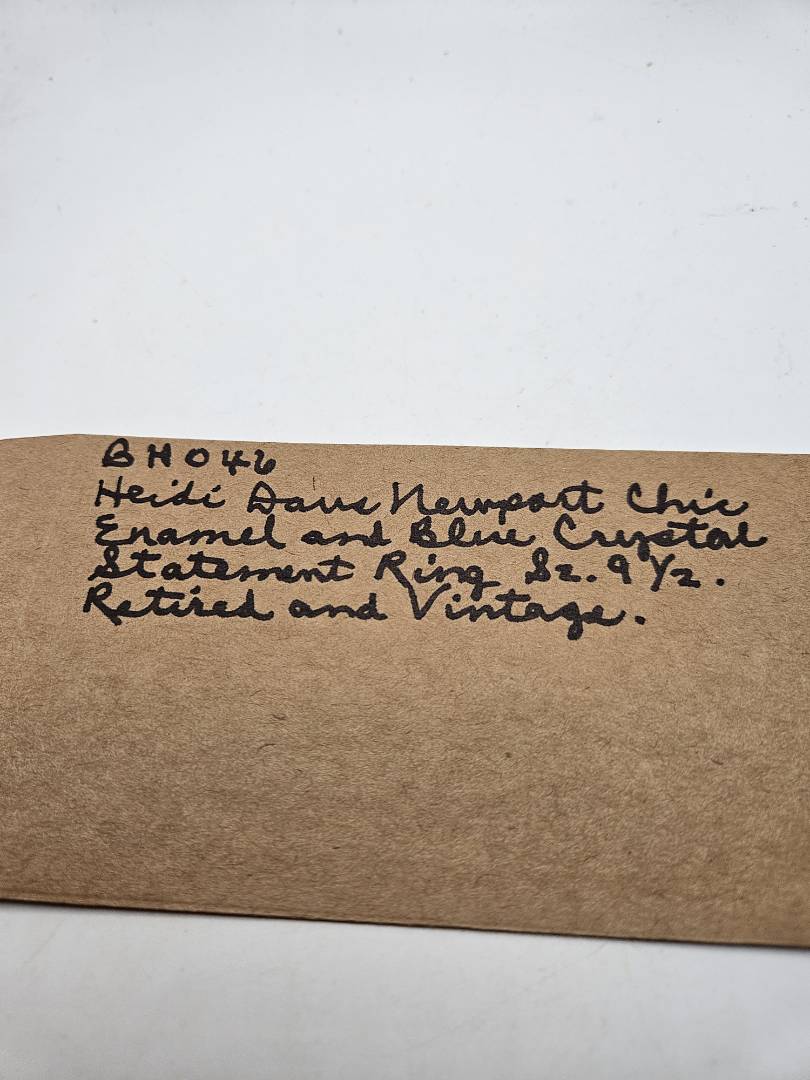 BH046
Heidi Daus Newport Chic
Enamel and Blue Crystal
Statement Ring Sz. 9 1/2.
Retired and Vintage.